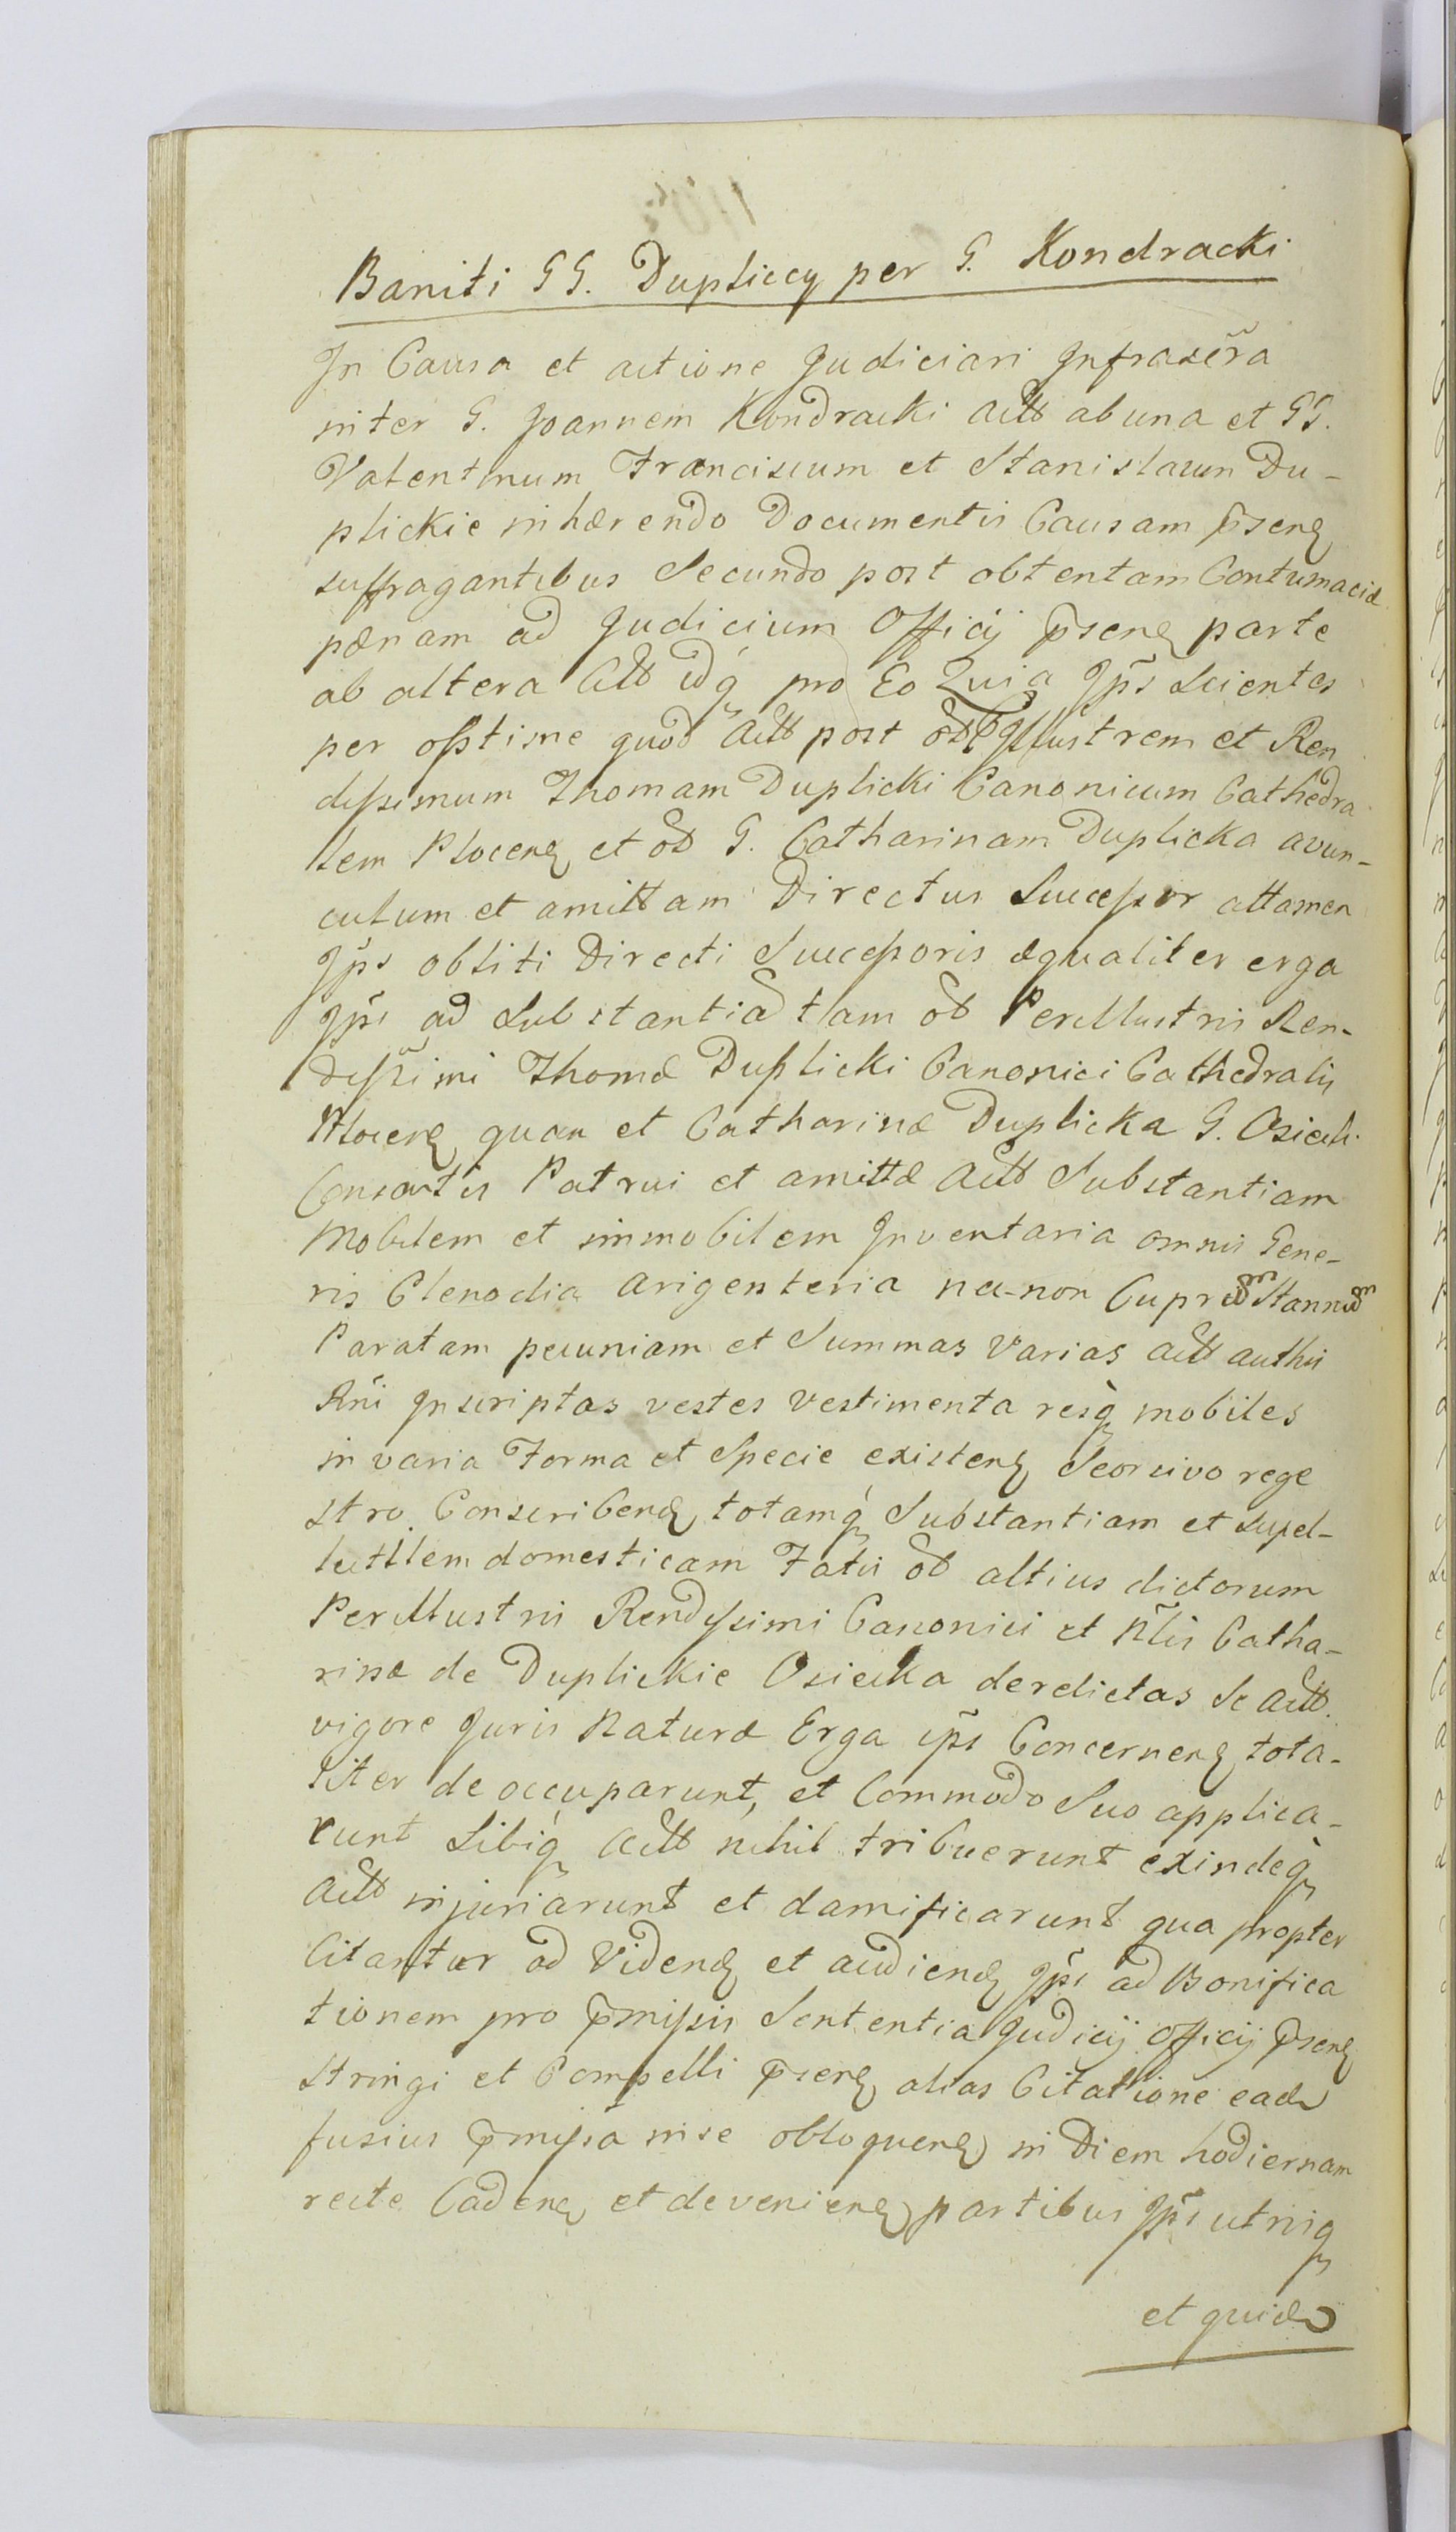 Baniti GG. Dupliccy per G. Kondracki
In Causa et actione Judiciari Infrascr̃a
inter G. Joannem Kondracki Actt ab una et GG.
Valentinum Franciscum et Stanislaum Du-
plickie inhærendo Documentis Causam p̃sen
suffragantibus Secundo post obtentam Contumaciæ
pænam ad Judicium Officij p̃sen parte
ab altera Citt idq́ pro Eo Quia Ip̃s Scientes
per optime quod Actt post Illustrem et Ren
dissimum Thomam Duplicki Canonicum Cathedra
lem Plocen et ob G. Catharinam Duplicka avun-
culum et amittam Directus Successor attamen
Ip̃s obliti Directi Successoris æqualiter erga
Ip̃s ad Substantia tam ob Perillustris Ren-
dissimi Thomæ Duplicki Canonici Cathedralis
Plocen quam et Catharinæ Duplicka G. Osiecki
Consortis Patrui et amittæ Actt Substantiam
Mobilem et immobilem Inventaria omnis Gene-
ris Clenodia Arigenteria nec-non Cupr Stann
Paratam pecuniam et Summas varias Actt authi
Rñi Inscriptas vestes vestimenta resq̀ mobiles
in varia Forma et Specie existen Seorsivo rege
stro Conscriben totamq́ Substantiam et supel-
lectilem domesticam Fatis ob altius dictorum
Perillustris Rendissimi Canonici et Ñlis Catha-
rinæ de Duplickie Osiecka derelictas Se Actt
vigore Juris Naturæ Erga ip̃s Concernen tota-
liter de occuparunt, et Commodo Suo applica-
runt Sibiq́ Actt nihil tribuerunt exindeq̀
Actt injuriarunt et damificarunt qua propter
Citantur ad Viden et audien Ip̃s ad Bonifica
tionem pro p̃missis Sententia Judicij Officij p̃sen
stringi et Compelli p̃sen alias Citatione ead
fusius p̃missa in se obloquen in Diem hodiernam
recte Caden et devenien partibus Ip̃s utrisq
et quid